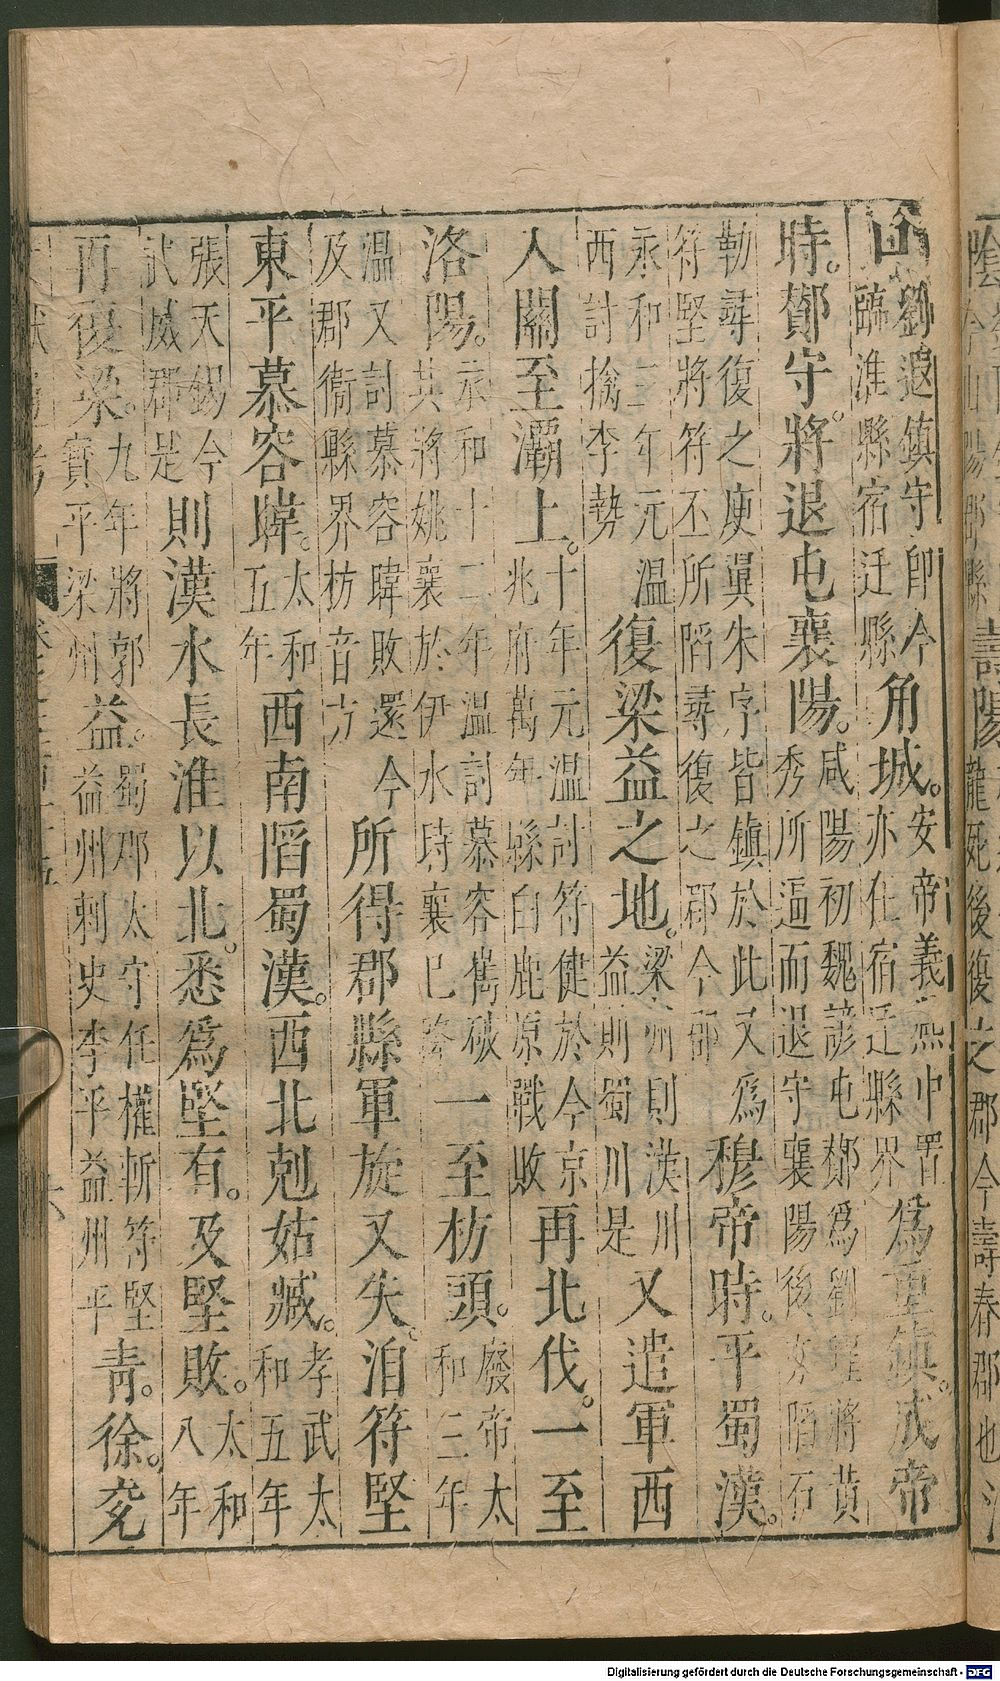 劉遐鎮守卽今
臨淮縣宿迁縣
角城。
安帝義熙中置
亦在宿迁縣界
爲重鎮。成帝
時。鄼守將退屯襄陽。
咸陽初魏諺屯鄼爲劉曜將黃
秀所逼而退守襄陽後亦陷石
勒尋復之庾翼朱序皆鎮於此又爲
符堅將符丕所䧟尋復之郡今郡
穆帝時。平蜀漢。
永和三年元温
西討擒李勢
復梁益之地。
梁州則漢川
益則蜀川是
又遣軍西
入關至灞上。
十年元温討符健於今京
兆府萬年縣白鹿原戰敗
再北伐。一至
洛陽。
永和十二年温討慕容雋破
其將姚襄於伊水時襄已降
一至枋頭。
廢帝太
和三年
温又討慕容暐敗還
及郡衞縣界枋音方
今所得郡縣軍旋又失。洎符堅
東平慕容暐。
太和
五年
西南䧟蜀漢。西北剋姑臧。
孝武太
和五年
張天錫今
武威郡是
則漢水長淮以北。悉爲堅有。及堅敗。
太和
八年
再復梁。
九年將郭
寶平梁州
益。
蜀郡太守任權斬符堅
益州刺史李平益州平
青。徐。兖